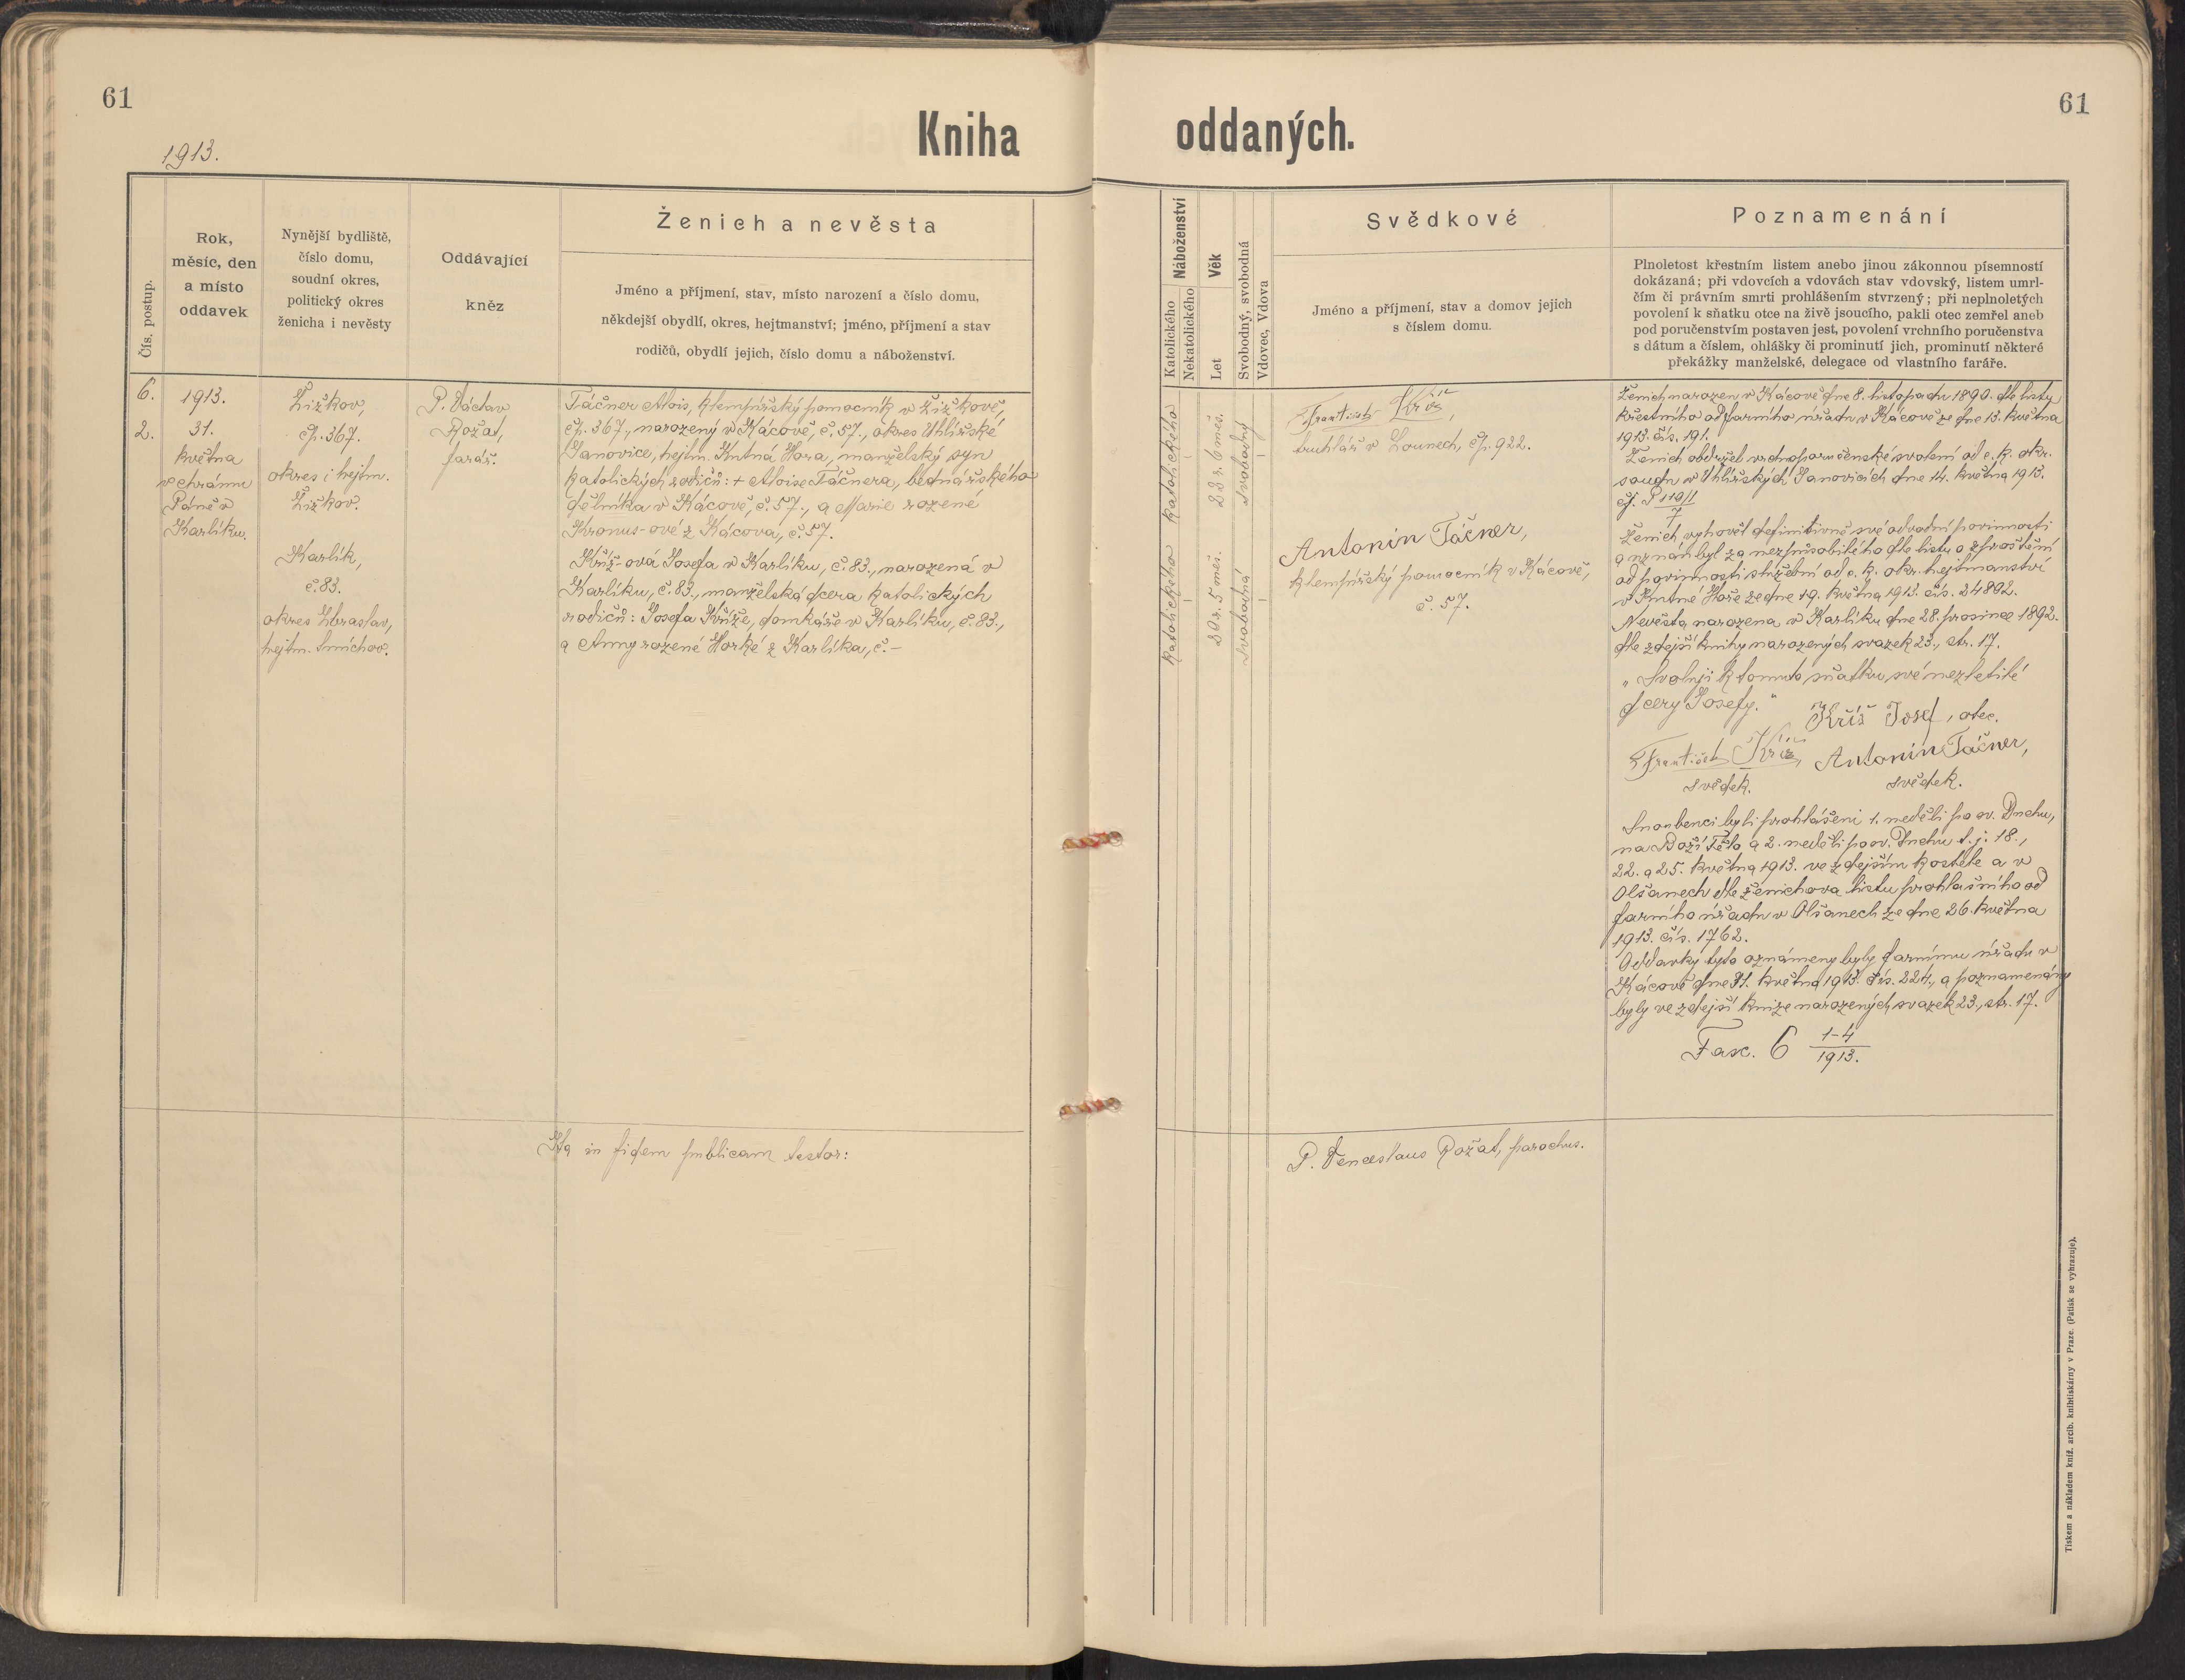 61
1913.
Kniha
Čís. postup.
Rok,
měsíc, den
a místo
oddavek
Nynější bydliště,
číslo domu,
soudní okres,
politický okres
ženicha i nevěsty
Oddávající
kněz
Ženich a nevěsta
Jméno a příjmení, stav, místo narození a číslo domu,
někdejší obydlí, okres, hejtmanství; jméno, příjmení a stav
rodičů, obydlí jejich, číslo domu a náboženství.
6.
2.
1913.
31.
května
v chrámu
Páně v
Karlíku.
Žižkov,
čp. 367.
okres i hejtm.
Žižkov.
Karlík,
č. 83.
okres Zbraslav,
hejtm. Smíchov.
P. Václav
Rožat,
farář.
Táčner Alois, klempířský pomocník v Žižkově,
čp. 367., narozený v Kácově, č. 57., okres Uhlířské
Janovice, hejtm. Kutná Hora, manželský syn
katolických rodičů: + Aloise Táčnera, bednářského
dělníka v Kácově, č. 57., a Marie rozené
Kronus-ové z Kácova, č. 57.
Kříž-ová Josefa v Karlíku, č. 83., narozená v
Karlíku, č. 83., manželská dcera katolických
rodičů: Josefa Kříže, domkáře v Karlíku, č. 83.,
a Anny rozené Horké z Karlíka, č. –
Ita in fidem publicam testor:
61
oddaných.
Náboženství
Katolického
Nekatolického
Věk
Let
Svobodný, svobodná
Vdovec, Vdova
Svědkové
Jméno a příjmení, stav a domov jejich
s číslem domu.
Poznamenání
Plnoletost křestním listem anebo jinou zákonnou písemností
dokázaná; při vdovcích a vdovách stav vdovský, listem umrl-
čím či právním smrti prohlášením stvrzený; při neplnoletých
povolení k sňatku otce na živě jsoucího, pakli otec zemřel aneb
pod poručenstvím postaven jest, povolení vrchního poručenstva
s dátum a číslem, ohlášky či prominutí jich, prominutí některé
překážky manželské, delegace od vlastního faráře.
katolického
22 r. 6 měs.
svobodný
katolického
20 r. 5 měs.
svobodná
František Kříž,
truhlář v Lounech, čp. 922.
Antonín Táčner,
klempířský pomocník v Kácově,
č. 57.
Ženich narozen v Kácově dne 8. listopadu 1890. dle listu
křestního od farního úřadu v Kácově ze dne 13. května
1913. čís. 191.
Ženich obdržel vrchnoporučenské svolení od c. k. okr.
soudu v Uhlířských Janovicích dne 14. května 1913.
čj. P 119/1
7
Ženich vyhověl definitivně své odvodní povinnosti
a uznán byl za nezpůsobilého dle listu o zproštění
od povinnosti služební od c. k. okr. hejtmanství
v Kutné Hoře ze dne 19. května 1913. čís. 24892.
Nevěsta narozena v Karlíku dne 28. prosince 1892.
dle zdejší knihy narozených svazek 23., str. 17.
„Svoluji k tomuto sňatku své nezletilé
dcery Josefy.“
Kříž Josef, otec.
František Kříž,
svědek.
Antonín Táčner,
svědek.
Snoubenci byli prohlášeni 1. neděli po sv. Duchu,
na Boží Tělo a 2. neděli po sv. Duchu t. j. 18.,
22. a 25. května 1913. ve zdejším kostele a v
Olšanech dle ženichova listu prohlašního od
farního úřadu v Olšanech ze dne 26. května
1913. čís. 1762.
Oddavky tyto oznámeny byly farnímu úřadu v
Kácově dne 31. května 1913. čís. 224., a poznamenány
byly ve zdejší knize narozených svazek 23., str. 17.
Fasc. 6 1–4
1913.
P. Venceslaus Rožat, parochus.
Tiskem a nákladem kníž. arcib. knihtiskárny v Praze. (Patisk se vyhrazuje).